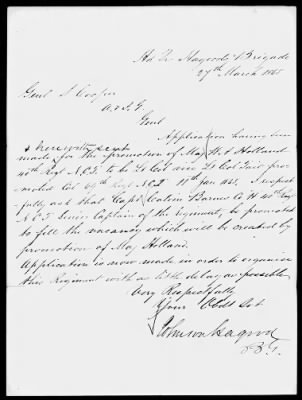 Hd Qr Hagoods Brigade
27th March 1865
Genl S Cooper
A & I G
Genl
Application having been
& herewith sent
made for the promotion of Maj H. F. Holland
40th Regt N.C.T. to be Lt Col vice Lt Col
Col N.C.T. 11th Jan I respect
fully ask that Capt Calvin Barnes Co H 40th Regt
N.C.T. Senior Captain of the regiment, be promoted
to fill the vacancy which will be created by
promotion of Maj Holland.
Application is now made in order to organize
this Regiment with as little delay as possible
Very Respectfully
Your Obdt Svt
Johnson Hagood
B. G.